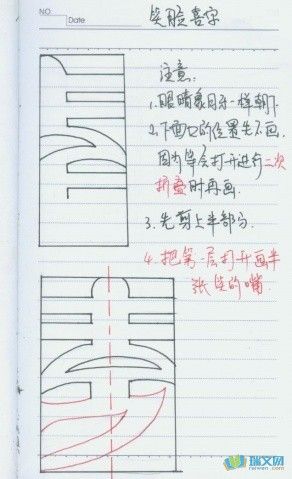 NO.
Date
笑脸喜字
注意:
1.眼睛象月牙一样朝下
2.下面口的位置先不画.
因为等会打开进行二次
折叠时再画.
3.先剪上半部分.
4.把第一层打开画半
张笑的嘴.
瑞文网
ruiwen.com